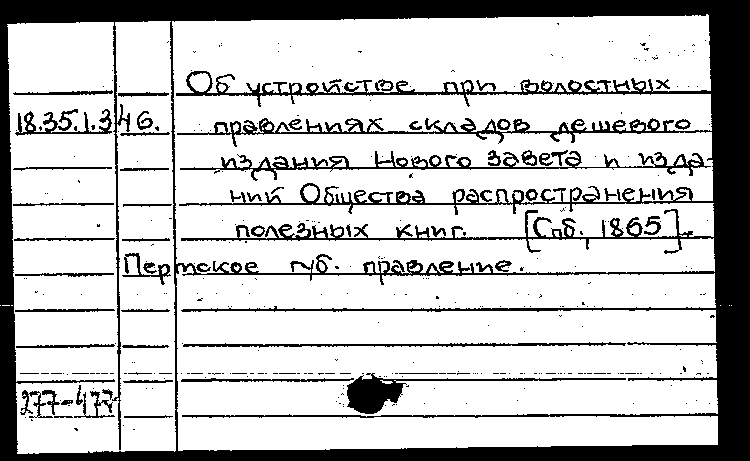 Об устройстве при волостных
18.35.1.346. правлениях складов дешевого
издания Нового завета и изда-
ний Общества распространения
полезных книг. [Спб., 1865].
Пермское губ. правление.
277-477